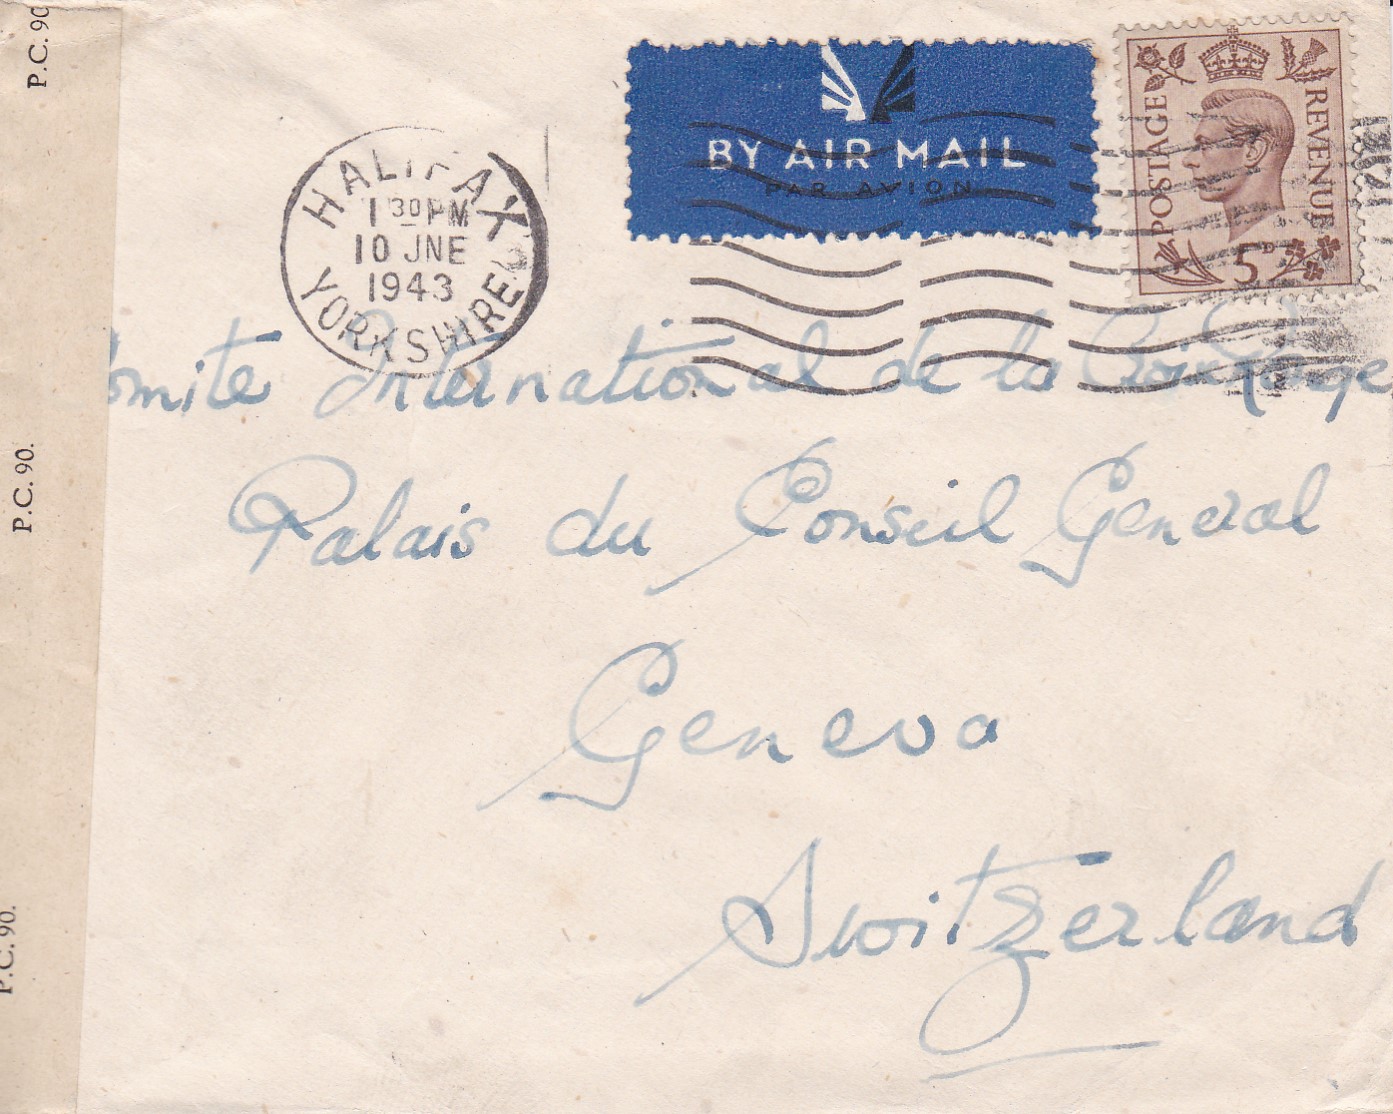 P.C. 90.
P.C. 90.
P.C. 90.
HALIFAX
1 30 PM
10 JNE
1943
YORKSHIRE
BY AIR MAIL
PAR AVION
POSTAGE
REVENUE
5D
omite International de la Croix Rouge
Palais du Conseil General
Geneva
Switzerland